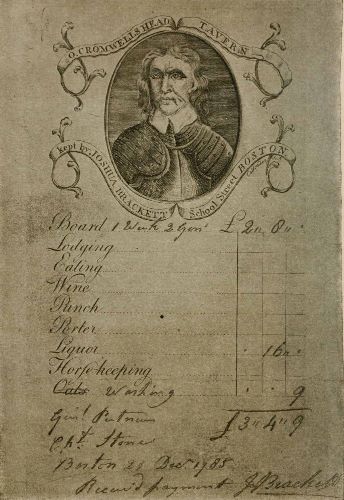 O. CROMWELLS HEAD TAVERN
kept by JOSHUA BRACKETT School Street BOSTON
Board 1 Week 2 £ 2" 8"
Lodging
Eating
Wine
Punch
Porter
Liquor 16"
Horse-keeping
Oats Washing 9
Genl. Putnam £ 3" 4" 9
Capt. Stone
Boston 29 Decr 1785
Receivd payment J Brackett